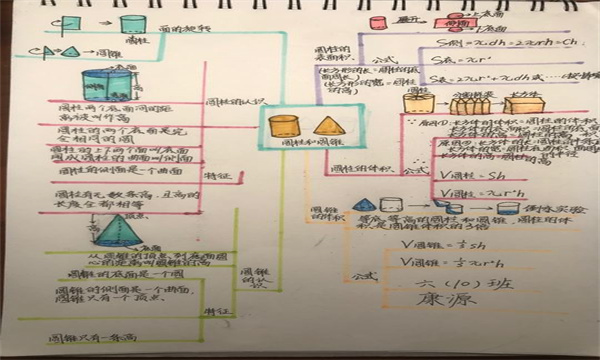 面的旋转
圆柱
圆锥
底面
高
圆柱两个底面间的距
离被叫作高
圆柱的两个底面是完
全相同的圆
圆柱的上下两个面叫底面
围成圆柱的曲面叫侧面
圆柱的侧面是一个曲面
圆柱有无数条高，且高的
长度全都相等
圆柱的认识
特征
顶点
高
底面
从圆锥的顶点到底面圆
心的距离叫圆锥的高
圆锥的底面是一个圆
圆锥的侧面是一个曲面，
圆锥只有一个顶点。
圆锥只有一条高
圆锥的认识
特征
圆柱和圆锥
圆柱的
表面积
公式
(长方形的长=圆柱的底
面周长)
(长方形的宽=圆柱
的高)
展开
上底面
侧面
下底面
圆柱
S侧=πdh=2πrh=Ch
S底=πr²
圆柱
长方体
圆柱的体积
公式
V圆柱=Sh
V圆柱=πr²h
圆锥
的体积
倒水实验
等底等高的圆柱和圆锥，圆柱的体
积是圆锥体积的3倍
公式
V圆锥=⅓Sh
V圆锥=⅓πr²h
六(10)班
康源